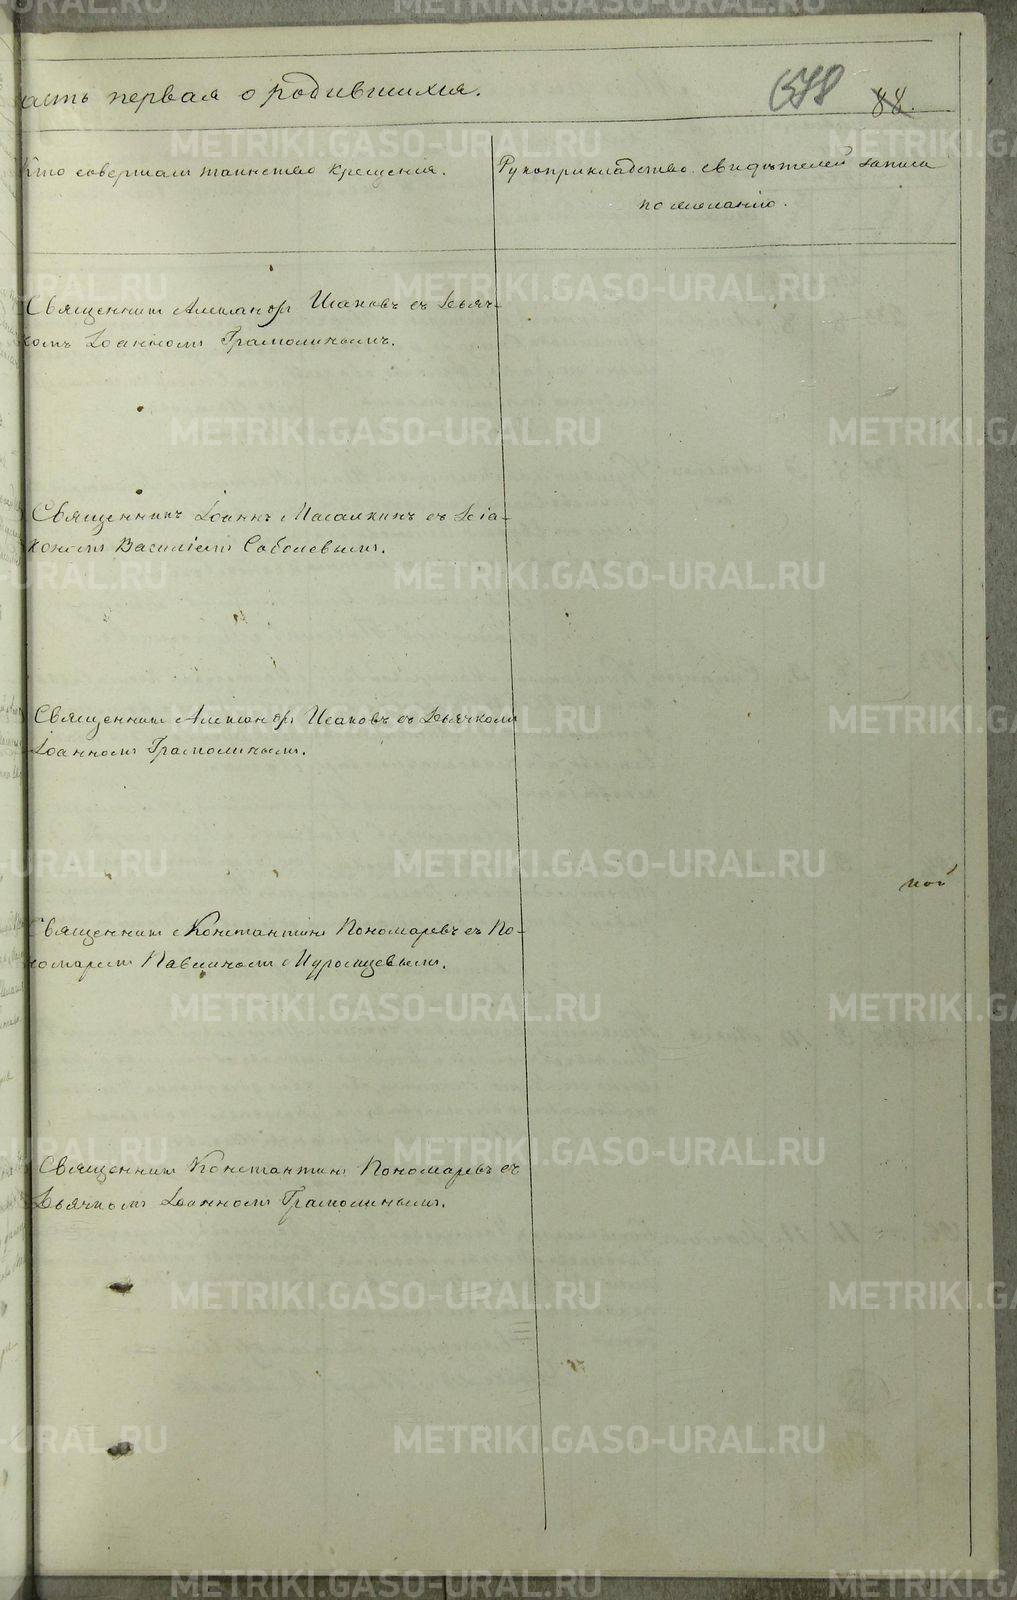 асть первая о родившихся.
578 88.
Кто совершалъ таинство крещения.
Рукоприкладство свидѣтелей записи
по желанію.
Священникъ Александръ Исаковъ съ Дьяч-
комъ Іоанномъ Грамолинымъ.
Священникъ Іоаннъ Масалкинъ съ Діа-
кономъ Василіемъ Соболевымъ.
Священникъ Александръ Исаковъ съ Дьячкомъ
Іоанномъ Грамолинымъ.
Священникъ Константинъ Пономаревъ съ По-
номаремъ Павлиномъ
Священникъ Константинъ Пономаревъ съ
Дьячкомъ Іоанномъ Грамолинымъ.
METRIKI.GASO-URAL.RU